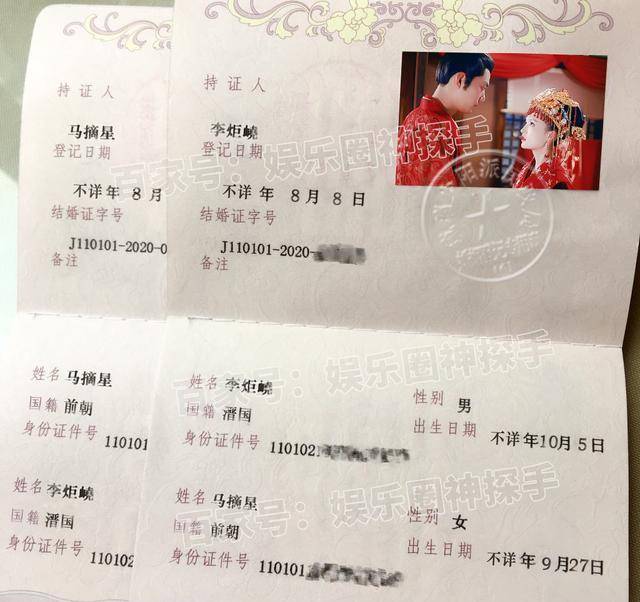 持证人
马摘星
登记日期
不详年 8月
结婚证字号
J110101-2020-0
备注
持证人
李炬嶢
登记日期
不详年 8月8日
结婚证字号
J110101-2020-
备注
百家号：娱乐圈神探手
姓名 马摘星
国籍 前朝
身份证件号 110101
姓名 李炬嶢
国籍 溍国
身份证件号 110102
姓名 李炬嶢
性别 男
国籍 溍国
出生日期 不详年10月5日
身份证件号 1101021
百家号：娱乐圈神探手
姓名 马摘星
性别 女
国籍 前朝
出生日期 不详年9月27日
身份证件号 1101012
百家号：娱乐圈神探手